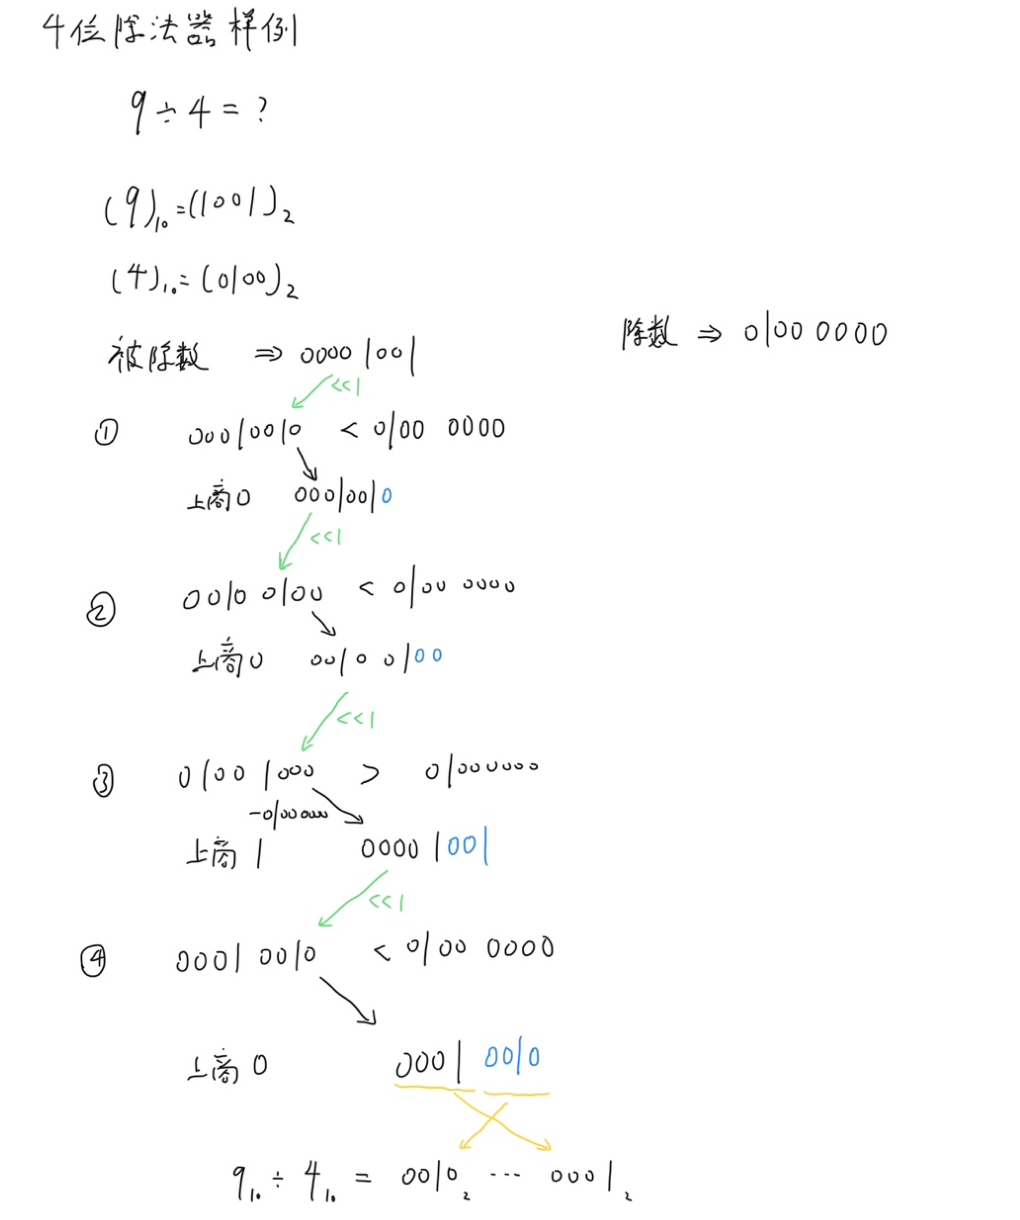 4位除法器样例
9÷4=?
(9)₁₀=(1001)₂
(4)₁₀=(0100)₂
被除数 ⇒ 0000 1001
除数 ⇒ 0100 0000
<<1
① 00010010 < 0100 0000
上商0 00010010
<<1
② 0010 0100 < 0100 0000
上商0 0010 0100
<<1
③ 0100 1000 > 01000000
-01000000
上商1 0000 1001
<<1
④ 0001 0010 < 0100 0000
上商0 0001 0010
9₁₀ ÷ 4₁₀ = 0010₂ ··· 0001₂